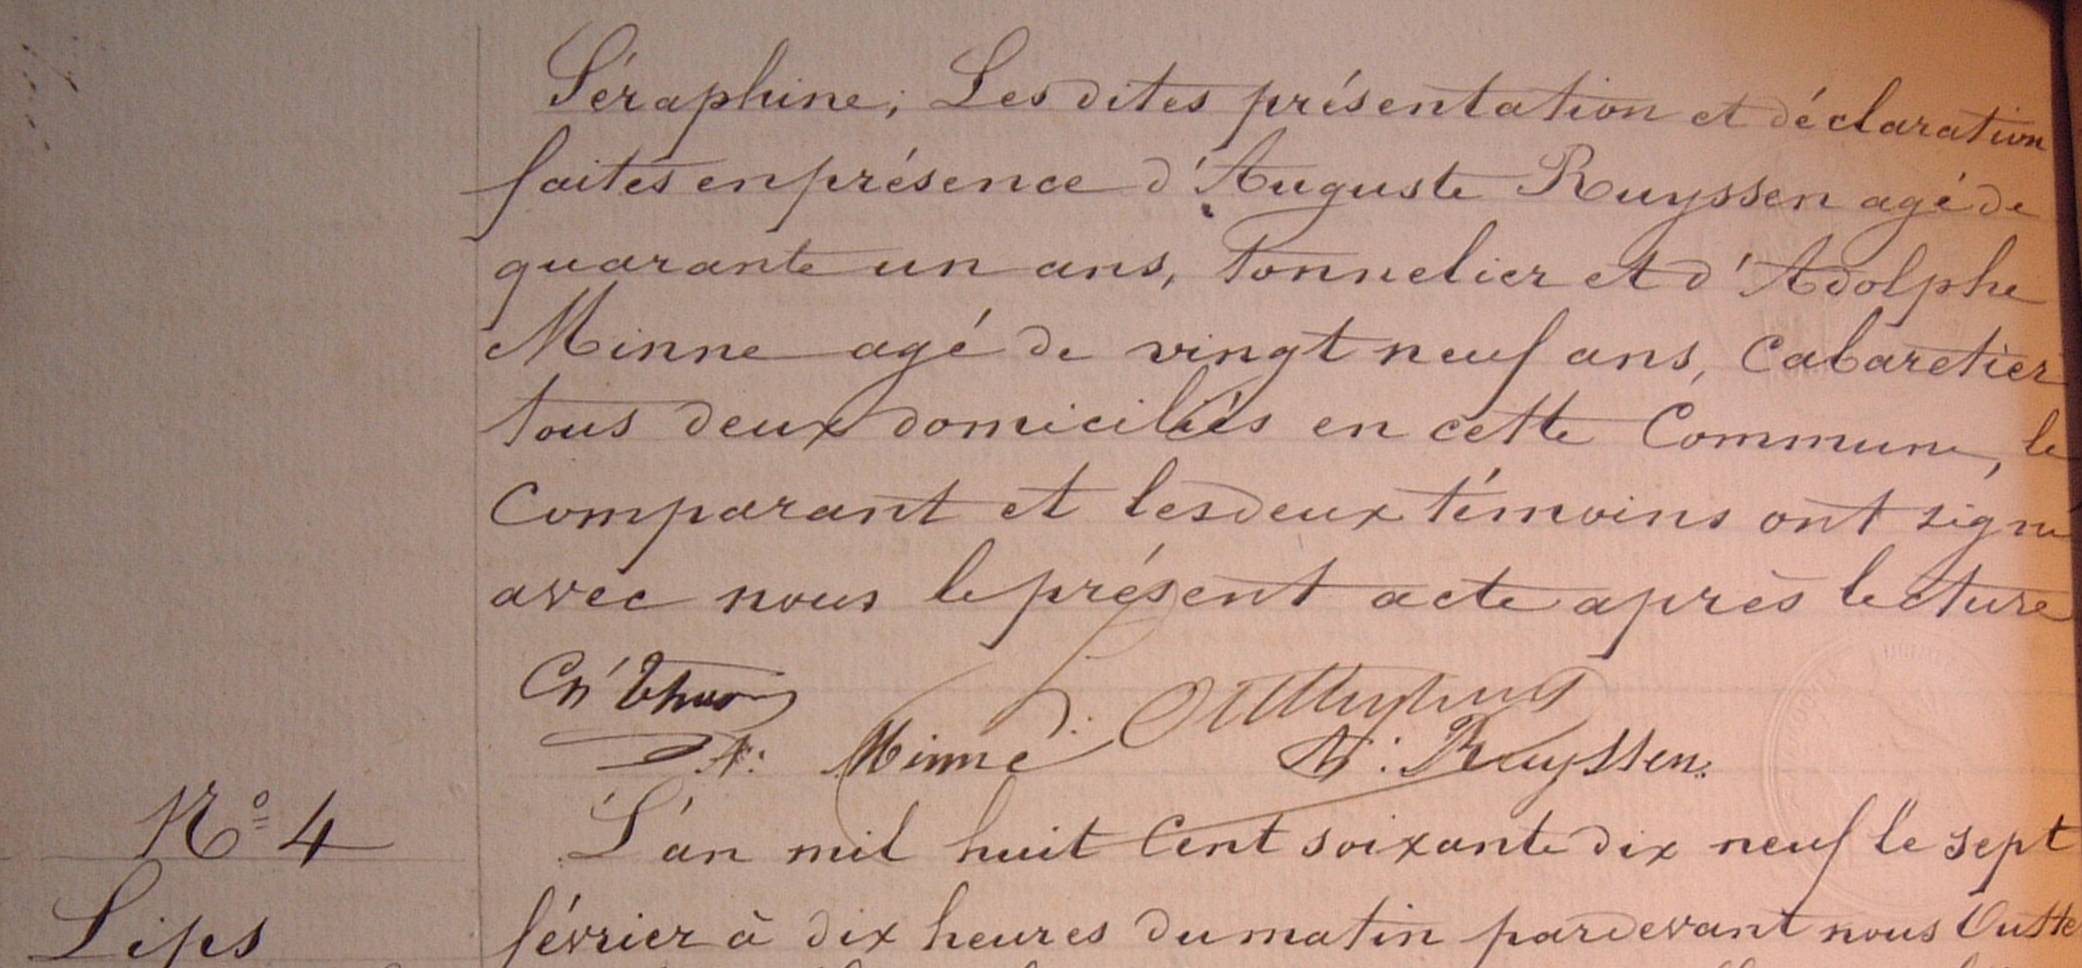 Séraphine; Les dites présentation et déclaration
faites en présence d'Auguste Ruyssen agé de
quarante un ans, tonnelier et d'Adolphe
Minne agé de vingt neuf ans, Cabaretier
tous deux domiciliés en cette Commune, le
Comparant et les deux témoins ont signé
avec nous le présent acte après lecture
A: Minne A: Ruyssen.
N° 4
L'an mil huit Cent soixante dix neuf le sept
Lips
février à dix heures du matin pardevant nous